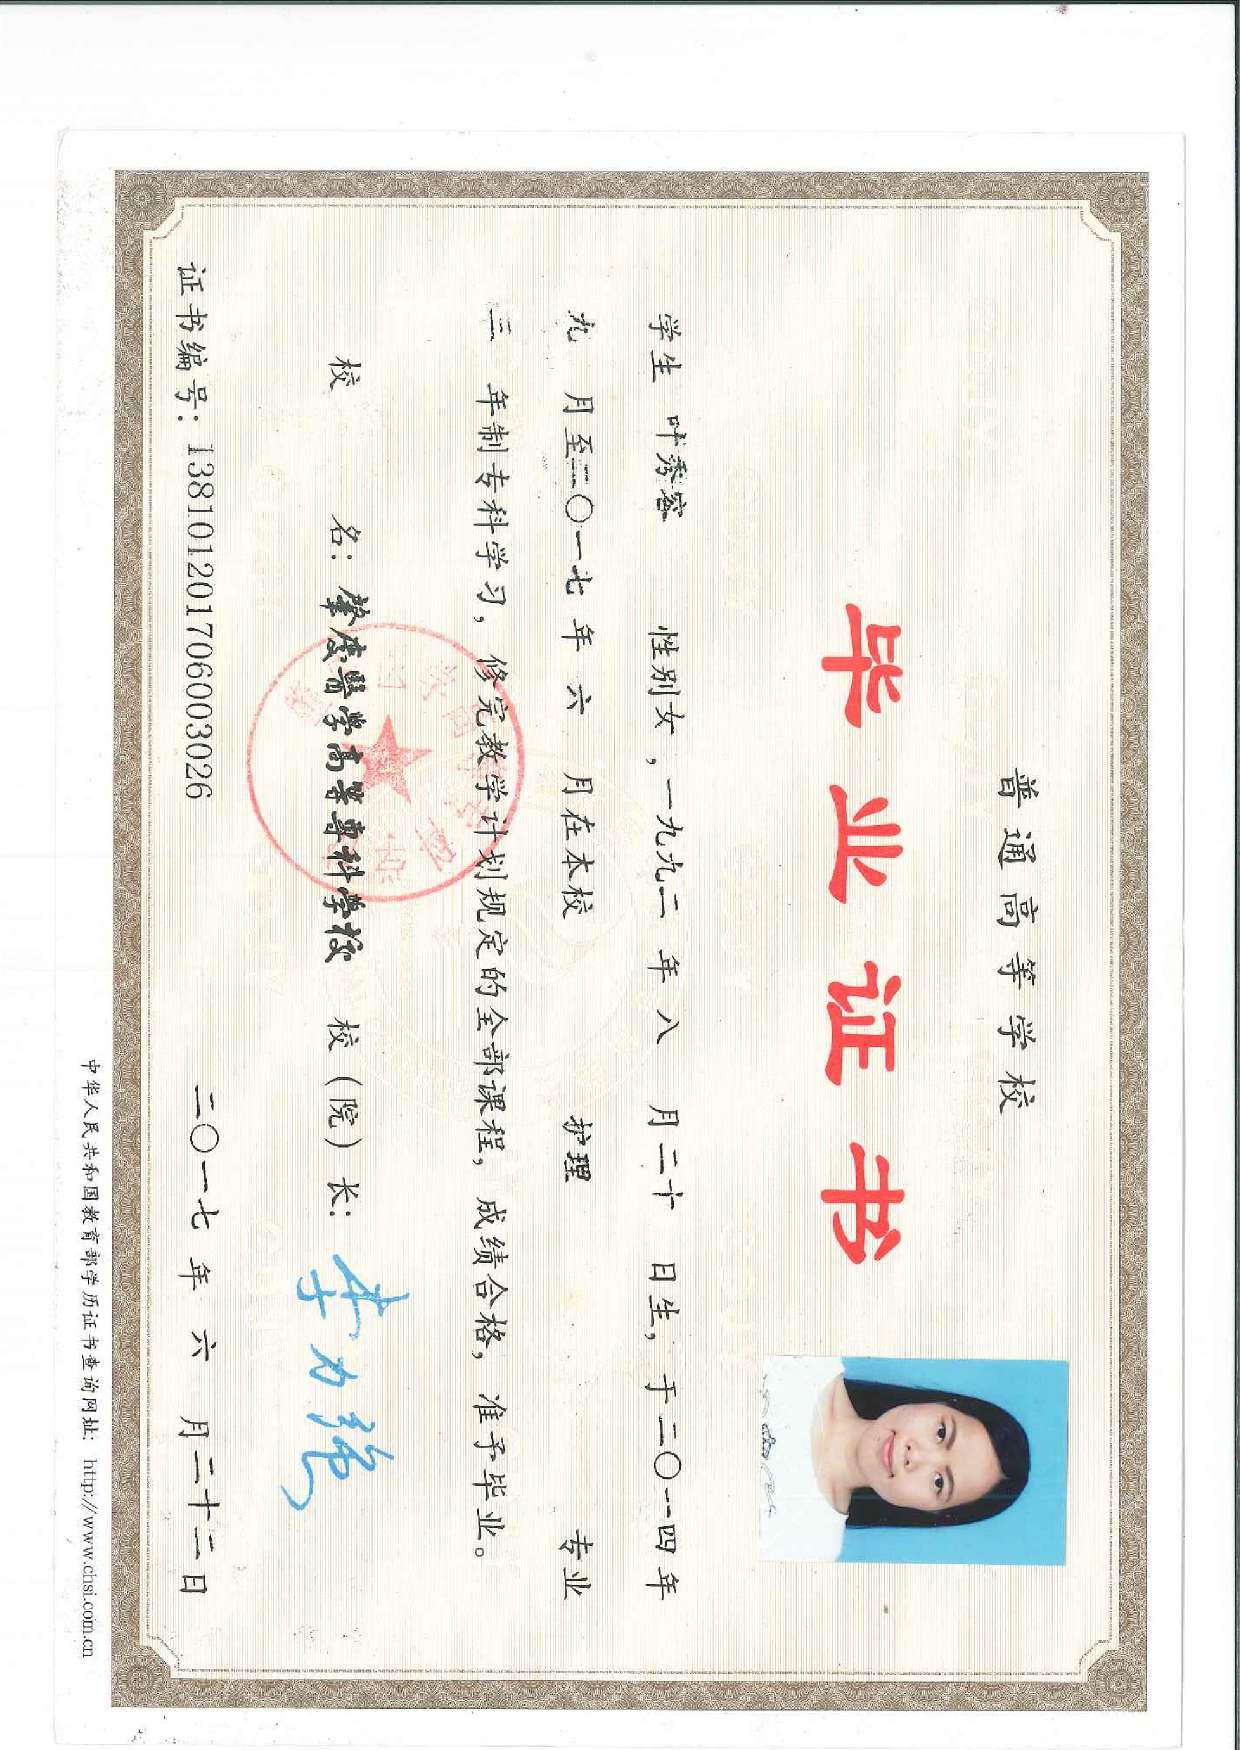 普通高等学校
毕业证书
学生 叶秀容 性别女，一九九二年八月二十日生，于二〇一四年
九月至二〇一七年六月在本校 护理 专业
三年制专科学习，修完教学计划规定的全部课程，成绩合格，准予毕业。
校 名：肇慶醫學高等專科學校 校（院）长：
证书编号：138101201706003026 二〇一七年六月二十二日
中华人民共和国教育部学历证书查询网址：http://www.chsi.com.cn